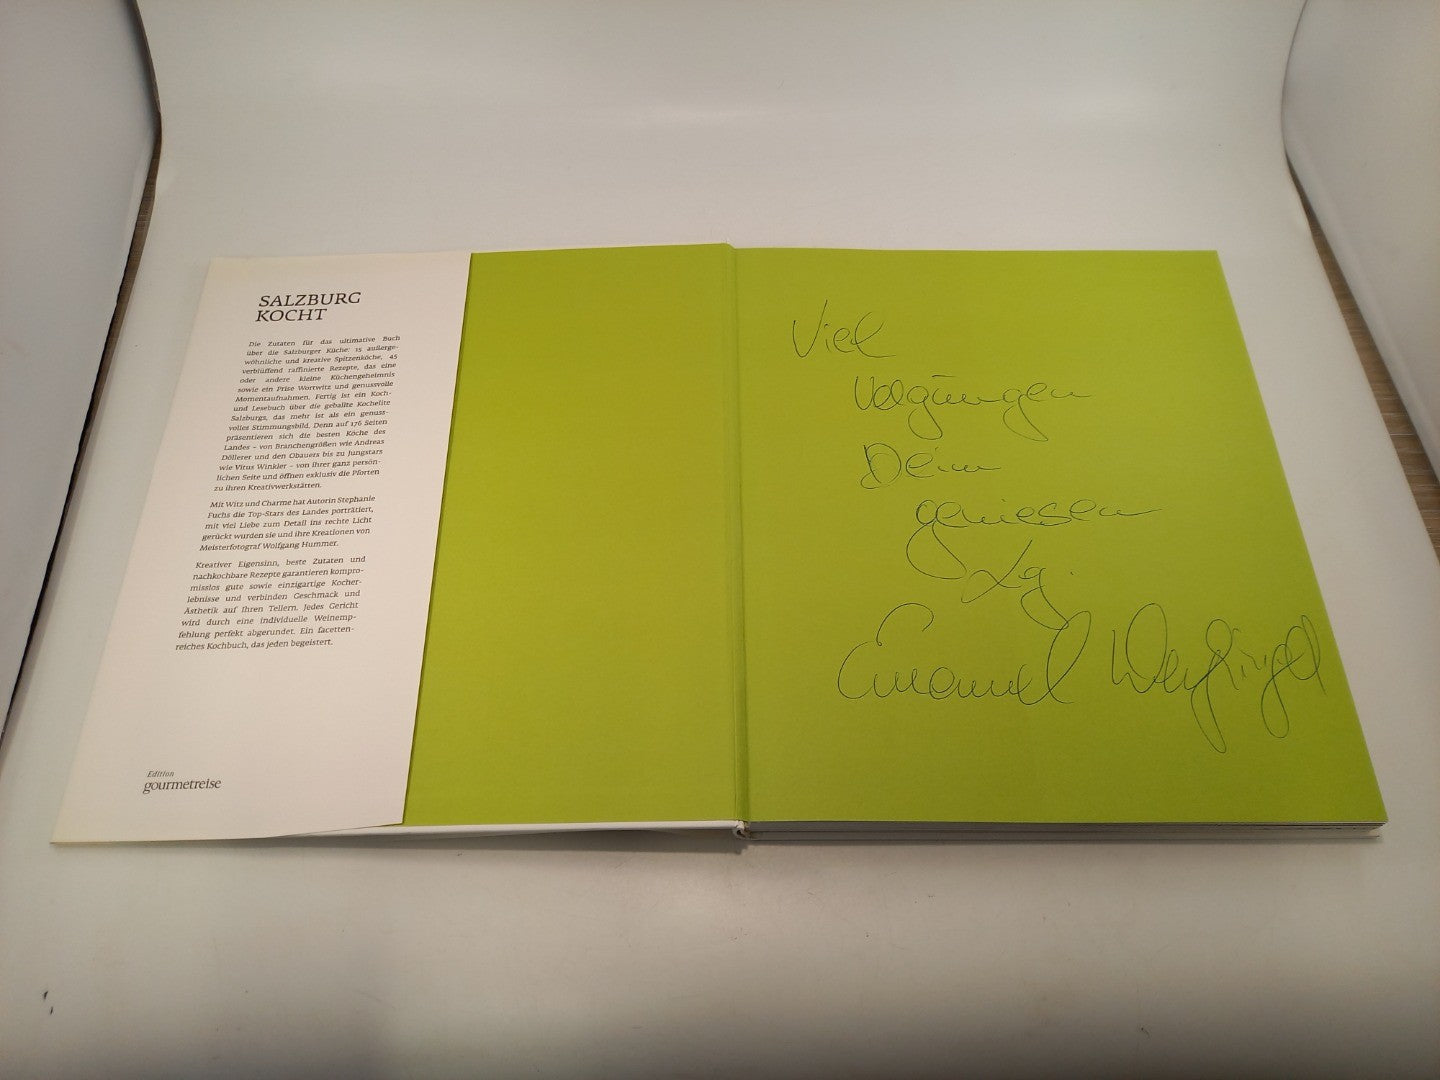 SALZBURG
KOCHT
Die Zutaten für das ultimative Buch
über die Salzburger Küche: 15 außerge-
wöhnliche und kreative Spitzenköche, 45
verblüffend raffinierte Rezepte, das eine
oder andere kleine Küchengeheimnis
sowie ein Prise Wortwitz und genussvolle
Momentaufnahmen. Fertig ist ein Koch-
und Lesebuch über die geballte Kochelite
Salzburgs, das mehr ist als ein genuss-
volles Stimmungsbild. Denn auf 176 Seiten
präsentieren sich die besten Köche des
Landes – von Branchengrößen wie Andreas
Döllerer und den Obauers bis zu Jungstars
wie Vitus Winkler – von ihrer ganz persön-
lichen Seite und öffnen exklusiv die Pforten
zu ihren Kreativwerkstätten.
Mit Witz und Charme hat Autorin Stephanie
Fuchs die Top-Stars des Landes porträtiert,
mit viel Liebe zum Detail ins rechte Licht
gerückt wurden sie und ihre Kreationen von
Meisterfotograf Wolfgang Hummer.
Kreativer Eigensinn, beste Zutaten und
nachkochbare Rezepte garantieren kompro-
misslos gute sowie einzigartige Kocher-
lebnisse und verbinden Geschmack und
Ästhetik auf Ihren Tellern. Jedes Gericht
wird durch eine individuelle Weinemp-
fehlung perfekt abgerundet. Ein facetten-
reiches Kochbuch, das jeden begeistert.
Edition
gourmetreise
Viel
Beim
geniesen
Lg.
Emanuel